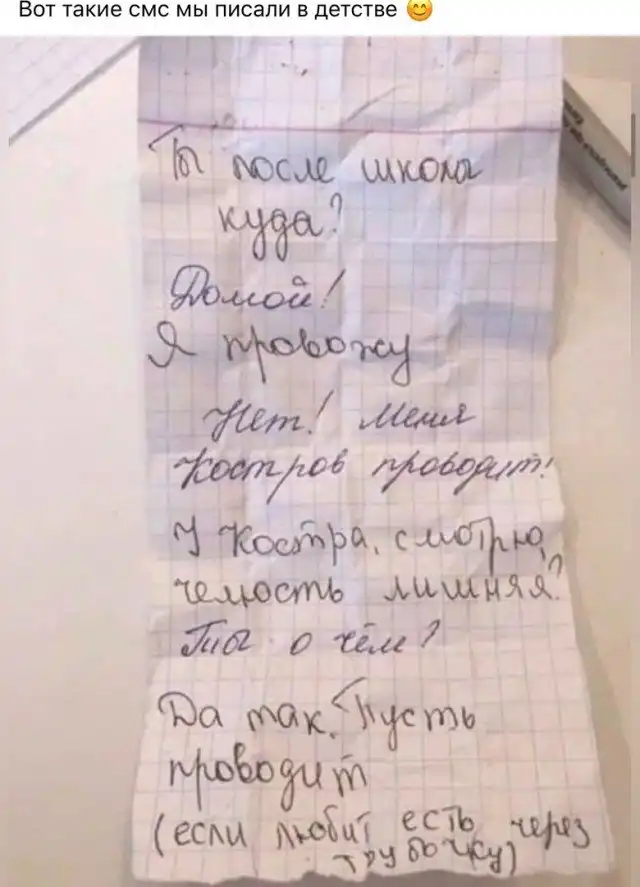 Вот такие смс мы писали в детстве 😊
Ты после школы
куда?
Домой!
Я провожу
Нет! Меня
Костров проводит!
У Костра, смотрю,
челюсть лишняя?
Ты о чём?
Да так. Пусть
проводит
(если любит есть через
трубочку)